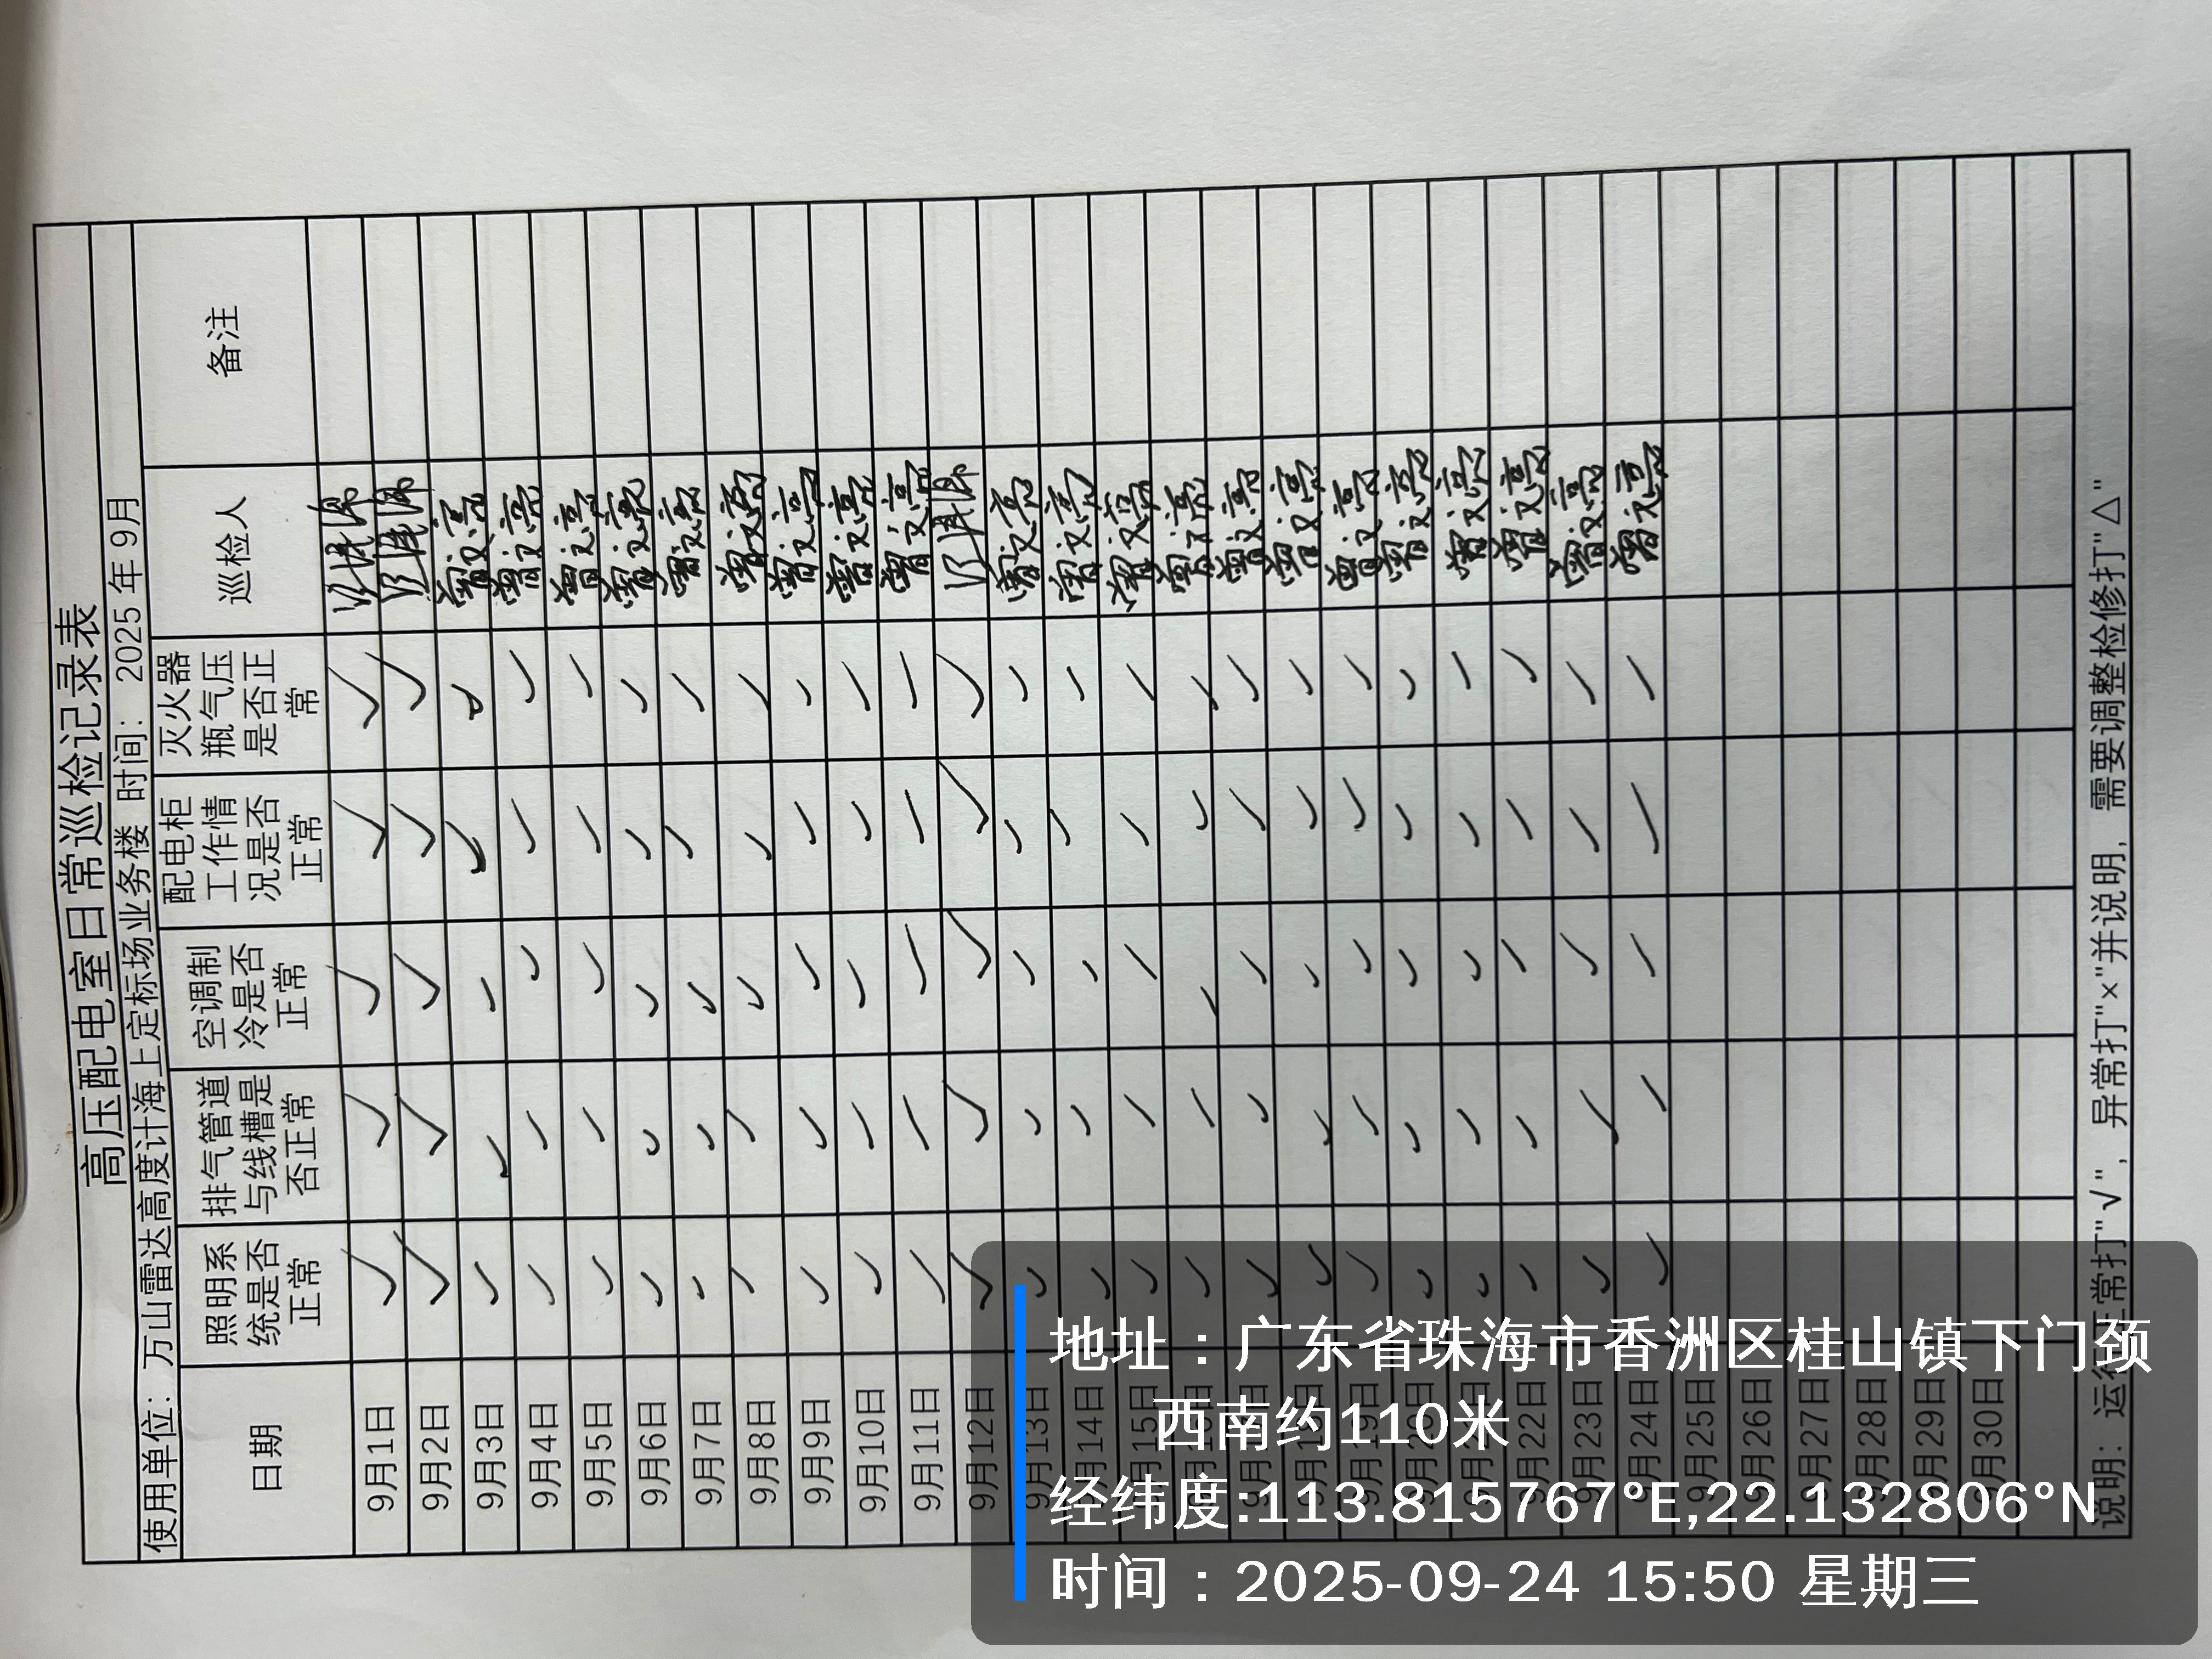 高压配电室日常巡检记录表
使用单位：万山雷达高度计海上定标场业务楼 时间：2025 年 9月
日期 照明系统是否正常 排气管道与线槽是否正常 空调制冷是否正常 配电柜工作情况是否正常 灭火器瓶气压是否正常 巡检人 备注
9月1日 ✓ ✓ ✓ ✓ ✓
9月2日 ✓ ✓ ✓ ✓ ✓
9月3日 ✓ ✓ ✓ ✓ ✓ 曾文亮
9月4日 ✓ ✓ ✓ ✓ ✓ 曾文亮
9月5日 ✓ ✓ ✓ ✓ ✓ 曾文亮
9月6日 ✓ ✓ ✓ ✓ ✓ 曾文亮
9月7日 ✓ ✓ ✓ ✓ ✓ 曾文亮
9月8日 ✓ ✓ ✓ ✓ ✓ 曾文亮
9月9日 ✓ ✓ ✓ ✓ ✓ 曾文亮
9月10日 ✓ ✓ ✓ ✓ ✓ 曾文亮
9月11日 ✓ ✓ ✓ ✓ ✓ 曾文亮
9月12日 ✓ ✓ ✓ ✓ ✓
9月13日 ✓ ✓ ✓ ✓ ✓ 曾文亮
9月14日 ✓ ✓ ✓ ✓ ✓ 曾文亮
9月15日 ✓ ✓ ✓ ✓ ✓ 曾文亮
9月16日 ✓ ✓ ✓ ✓ ✓ 曾文亮
9月17日 ✓ ✓ ✓ ✓ ✓ 曾文亮
9月18日 ✓ ✓ ✓ ✓ ✓ 曾文亮
9月19日 ✓ ✓ ✓ ✓ ✓ 曾文亮
9月20日 ✓ ✓ ✓ ✓ ✓ 曾文亮
9月21日 ✓ ✓ ✓ ✓ ✓ 曾文亮
9月22日 ✓ ✓ ✓ ✓ ✓ 曾文亮
9月23日 ✓ ✓ ✓ ✓ ✓ 曾文亮
9月24日 ✓ ✓ ✓ ✓ ✓ 曾文亮
9月25日
9月26日
9月27日
9月28日
9月29日
9月30日
说明：运行正常打"√"，异常打"×"并说明，需要调整检修打"△"
地址：广东省珠海市香洲区桂山镇下门颈
西南约110米
经纬度:113.815767°E,22.132806°N
时间：2025-09-24 15:50 星期三